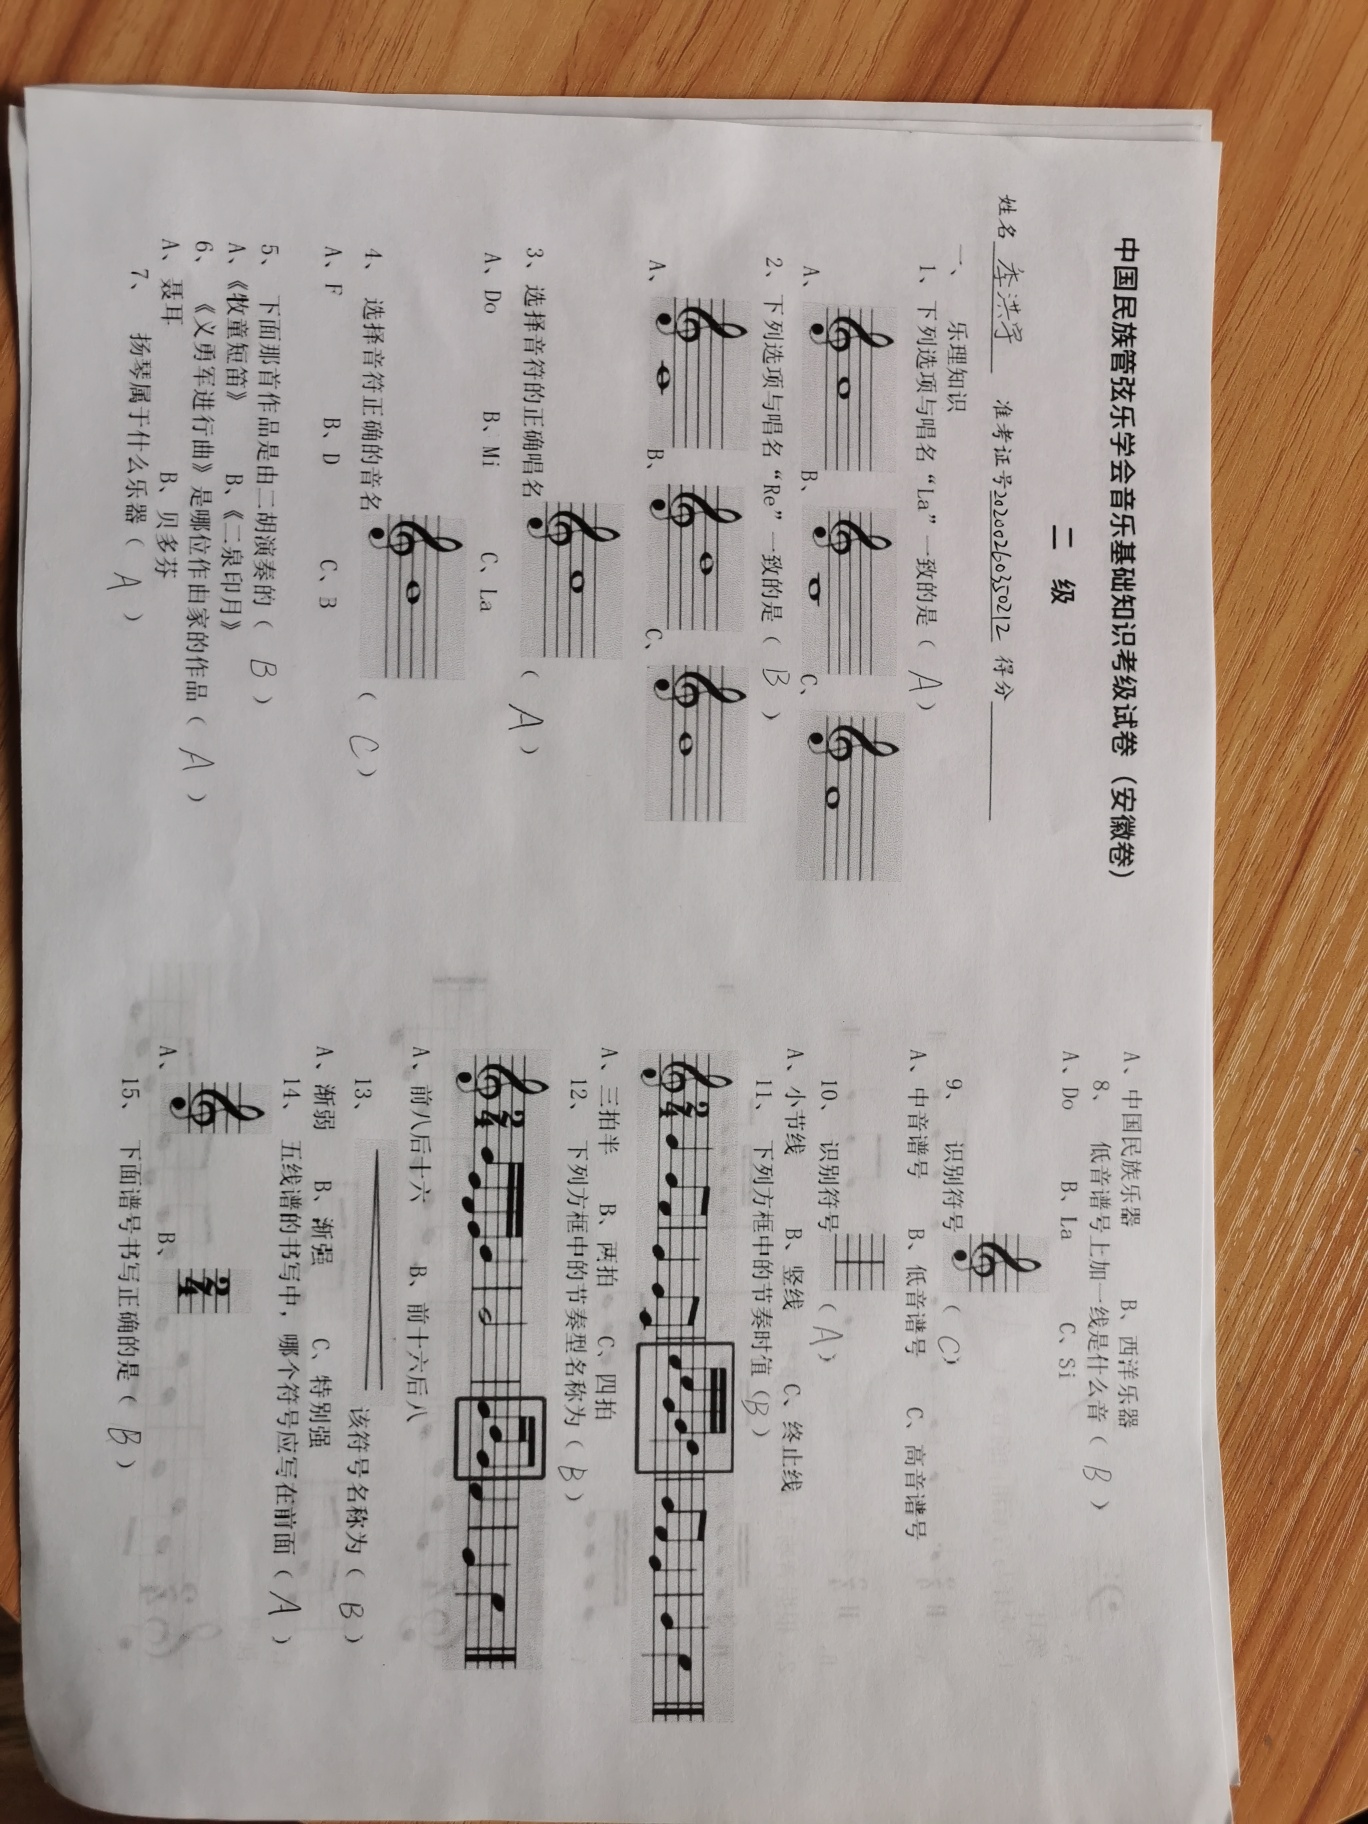 中国民族管弦乐学会音乐基础知识考级试卷（安徽卷）
二 级
姓名 李洪宇 准考证号 20200260350212 得分
一、 乐理知识
1、 下列选项与唱名“La”一致的是（ A ）
A、 B、 C、
2、 下列选项与唱名“Re”一致的是（ B ）
A、 B、 C、
3、 选择音符的正确唱名 （ A ）
A、Do B、Mi C、La
4、 选择音符正确的音名 （ C ）
A、F B、D C、B
5、 下面那首作品是由二胡演奏的（ B ）
A、《牧童短笛》 B、《二泉印月》
6、 《义勇军进行曲》是哪位作曲家的作品（ A ）
A、聂耳 B、贝多芬
7、 扬琴属于什么乐器（ A ）
A、中国民族乐器 B、西洋乐器
8、 低音谱号上加一线是什么音（ B ）
A、Do B、La C、Si
9、 识别符号 （ C ）
A、中音谱号 B、低音谱号 C、高音谱号
10、 识别符号 （ A ）
A、小节线 B、竖线 C、终止线
11、 下列方框中的节奏时值（ B ）
2
4
A、三拍半 B、两拍 C、四拍
12、 下列方框中的节奏型名称为（ B ）
2
4
A、前八后十六 B、前十六后八
13、 该符号名称为（ B ）
A、渐弱 B、渐强 C、特别强
14、 五线谱的书写中，哪个符号应写在前面（ A ）
A、 B、 2
4
15、 下面谱号书写正确的是（ B ）